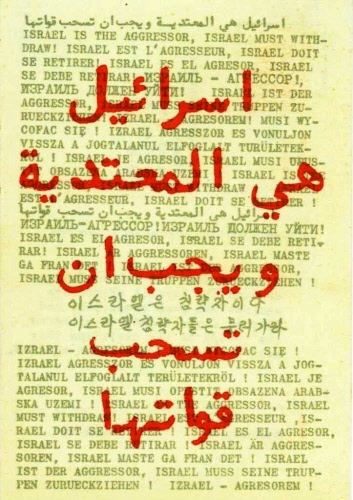 اسرائيل هي المعتدية ويجب ان تسحب قواتها
ISRAEL IS THE AGGRESSOR, ISRAEL MUST WITH-
DRAW! ISRAEL EST L'AGRESSEUR, ISRAEL DOIT
SE RETIRER! ISRAEL ES EL AGRESOR, ISRAEL
SE DEBE RETIRAR! ИЗРАИЛЬ - АГРЕССОР!,
ИЗРАИЛЬ ДОЛЖЕН УЙТИ! ISRAEL IST DER
AGGRESSOR, ISRAEL MUSS TRUPPEN ZU-
RUECKZIEHEN! AGRESOREM! MUSI WY-
COFAC SIĘ ! IZRAEL AGRESSZOR ES VONULJON
VISSZA A JOGTALANUL ELFOGLALT TERÜLETEK-
RŐL ! ISRAEL JE AGRESOR, ISRAEL MUSI
OBSAZENA ISRAEL IS
WITHDRAW ISRAEL
EST L'AGRESSEUR, ISRAEL DOIT SE RETIRER !
اسرائيل هي المعتدية ويجب ان تسحب قواتها
ИЗРАИЛЬ-АГРЕССОР!ИЗРАИЛЬ ДОЛЖЕН УЙТИ!
ISRAEL ES EL AGRESOR, ISRAEL SE DEBE RETI-
RAR! ISRAEL ÄR AGGRESSOREN, ISRAEL MASTE
GA FRAN DET ! ISRAEL IST AGGRESSOR,
ISRAEL MUSS SEINE TRUPPEN ZURUECKZIEHEN !
이스라엘은 침략자이다
이스라엘 침략자들은 물러가라
IZRAEL - AGRESOREM ! MUSI WYCOFAC SIĘ !
IZRAEL AGRESSZOR ES VONULJON VISSZA A JOG-
TALANUL ELFOGLALT TERÜLETEKRŐL ! ISRAEL JE
AGRESOR, ISRAEL MUSI OPUSTIT OBSAZENA ARAB-
SKA UZEMI ! ISRAEL THE AGGRESSOR, ISRAEL
MUST WITHDRAW! ISRAEL L'AGRESSEUR, IS-
RAEL DOIT SE RETIRER ! ISRAEL ES EL AGRESOR,
ISRAEL SE DEBE RETIRAR ! ISRAEL ÄR AGGRES-
SOREN, ISRAEL MASTE GA FRAN DET ! ISRAEL
IST DER AGGRESSOR, ISRAEL MUSS SEINE TRUP-
PEN ZURUECKZIEHEN ! IZRAEL - AGRESOREM !
اسرائيل
هي المعتدية
ويجب ان
تسحب
قواتها